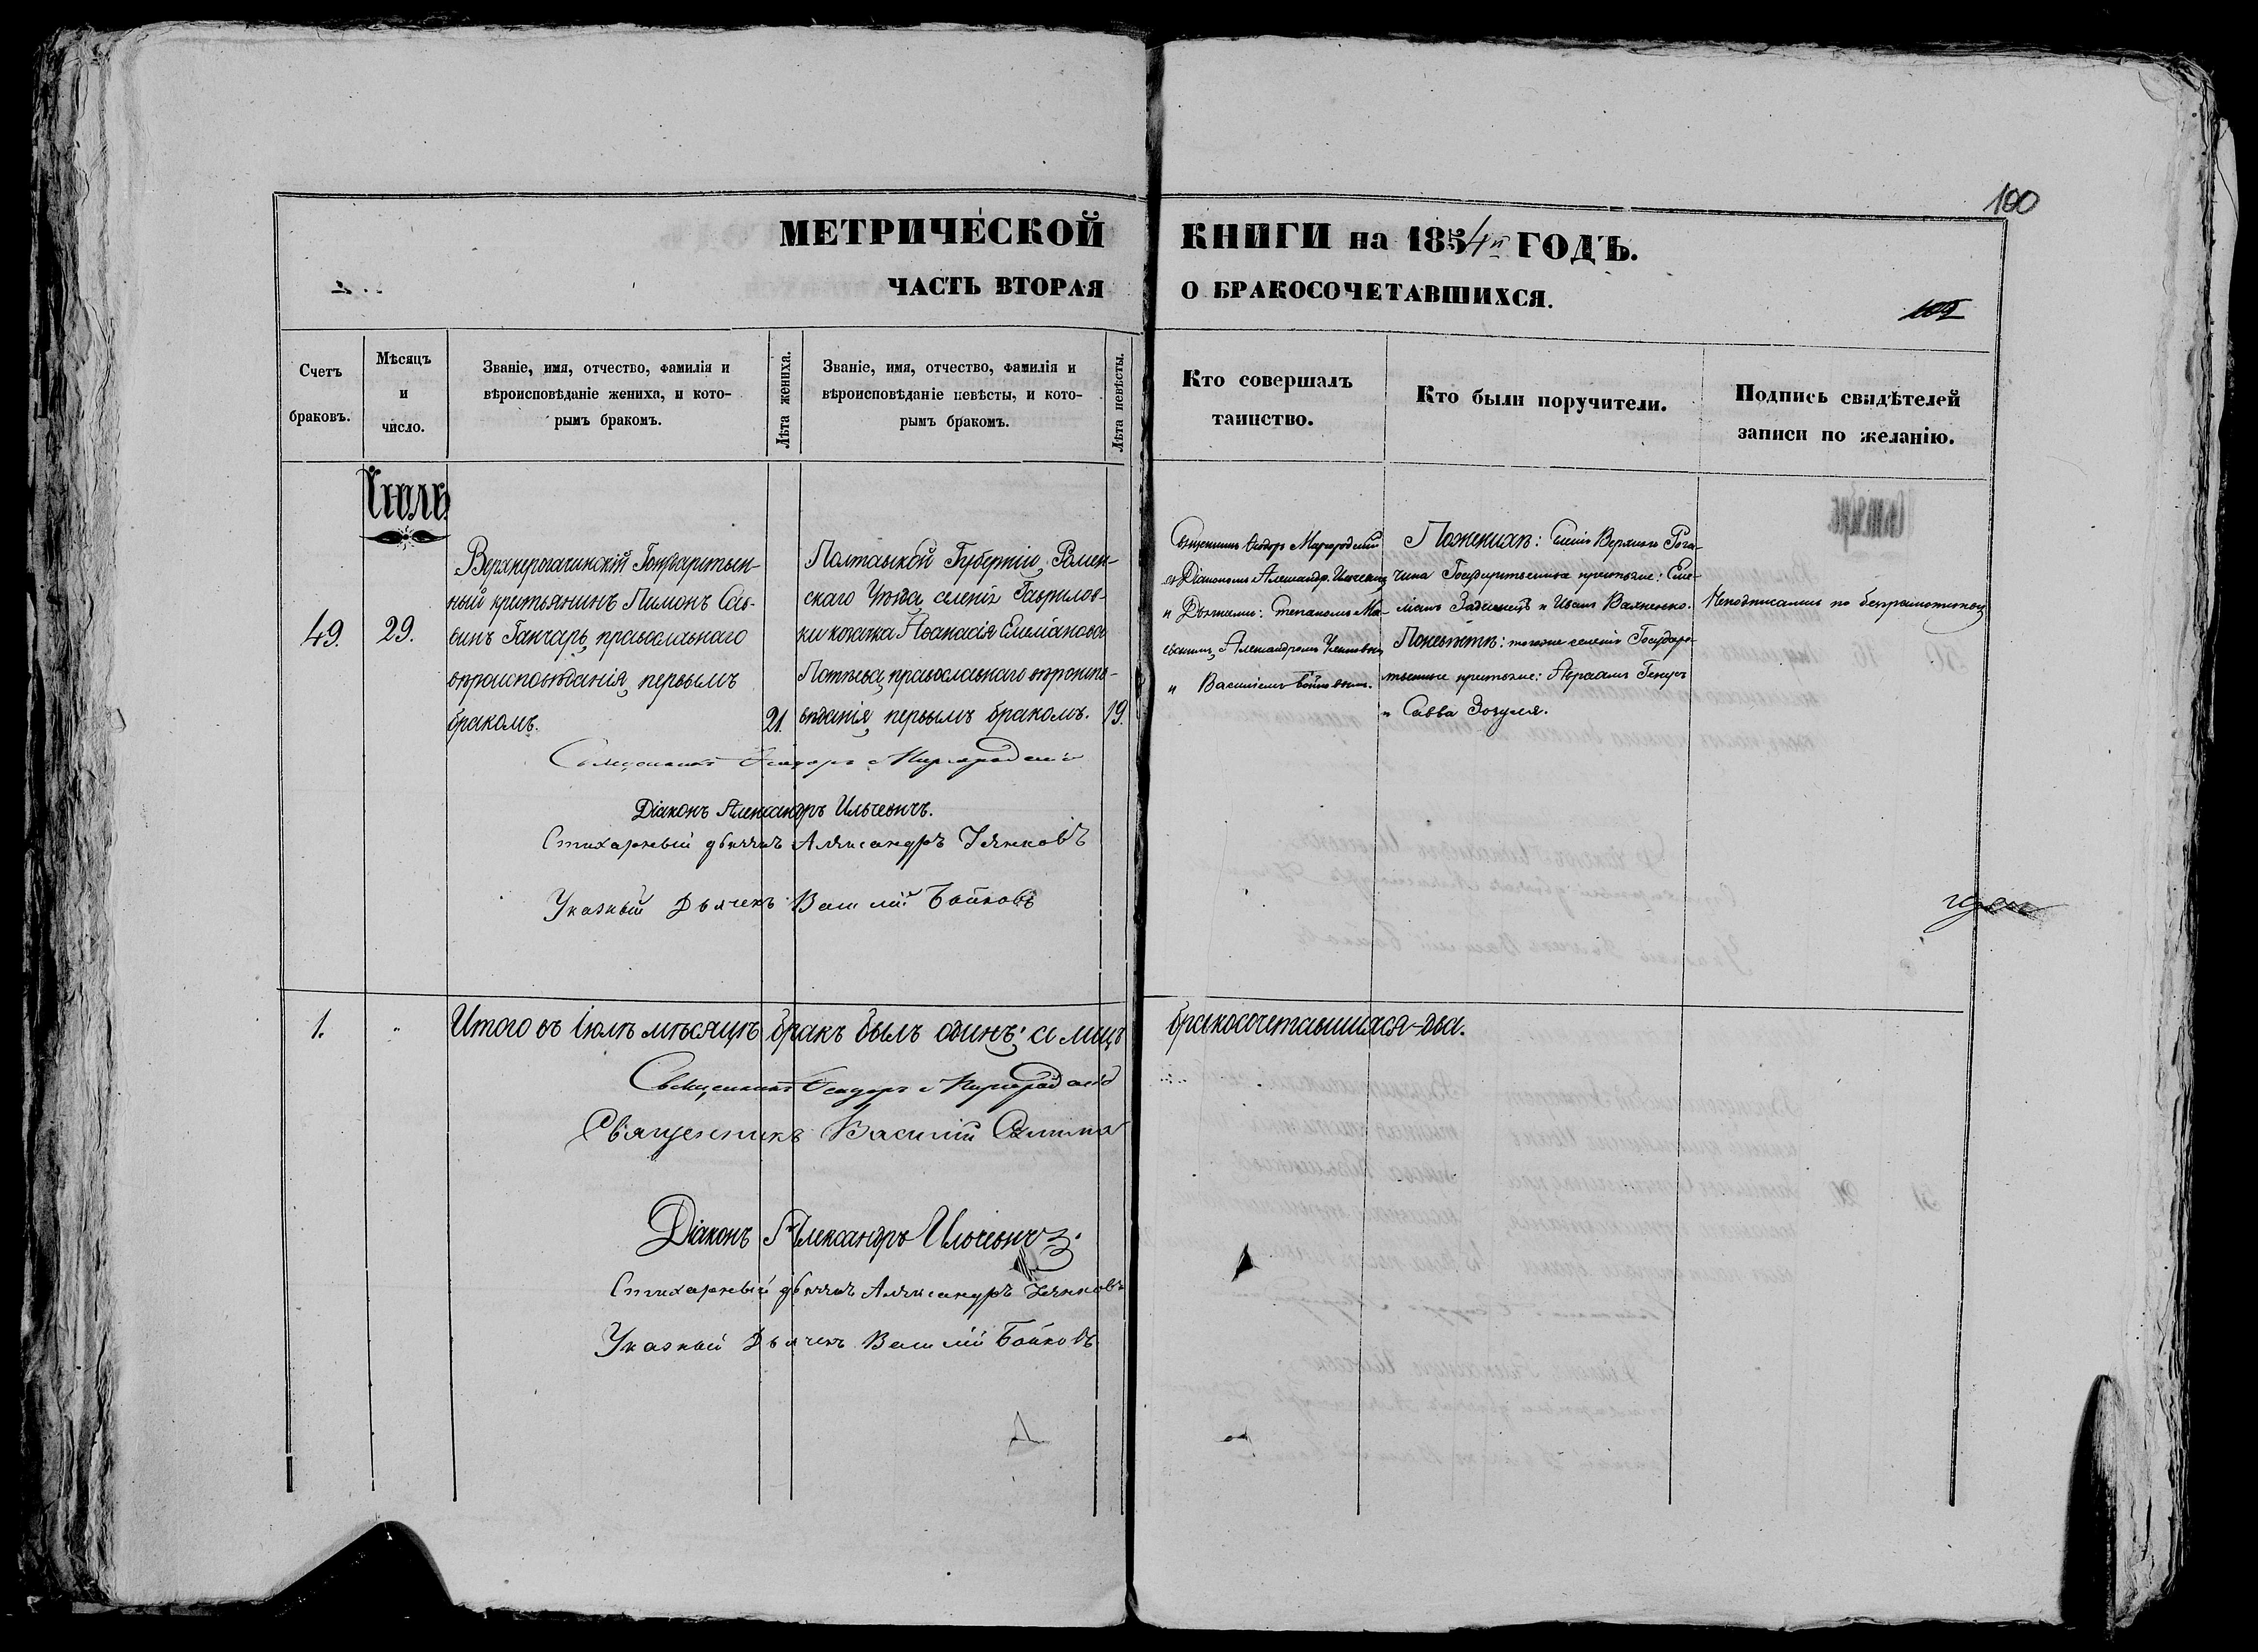 100
МЕТРИЧЕСКОЙ КНИГИ на 1854й ГОДЪ.
ЧАСТЬ ВТОРАЯ О БРАКОСОЧЕТАВШИХСЯ.
102
Счетъ браковъ.
Мѣсяцъ и число.
Званіе, имя, отчество, фамилія и
вѣроисповѣданіе жениха, и кото-
рымъ бракомъ.
Лѣта жениха.
Званіе, имя, отчество, фамилія и
вѣроисповѣданіе невѣсты, и кото-
рымъ бракомъ.
Лѣта невѣсты.
Кто совершалъ
таинство.
Кто были поручители.
Подпись свидѣтелей
записи по желанію.
Іюль.
49.
29.
Верхнерогачинскій Государствен-
ный крестьянинъ Пимонъ Сав-
винъ Ганчаръ, православнаго
вѣроисповѣданія, первымъ
бракомъ.
21.
Полтавской Губерніи, Ромен-
скаго Уѣзда, селенія Гаврилов-
ки козачка Аѳанасія Емеліанова
православнаго вѣроиспо-
вѣданія, первымъ бракомъ.
19.
Священникъ Ѳеодоръ Миргородскій
съ Діакономъ Александр. Ильчевич.
и Дьячками: Степаномъ Ма-
Александромъ
и Василіемъ Бойковымъ.
По женихѣ: Селенія Верхняго Рога-
чика Государственные крестьяне: Еме-
ліанъ и Иванъ Вахненко.
По невѣстѣ: тогоже селенія Государс-
твенные крестьяне: Авраамъ
и Савва Зозуля.
Неподписались по безграмотности
Священникъ Ѳеодоръ Миргородскій
Діаконъ Александръ Ильчевичъ.
Стихарный дьячокъ Александръ
Указный Дьячекъ Василій Бойковъ
1.
„
Итого въ Іюлѣ мѣсяцѣ бракъ былъ одинъ; а лицъ бракосочетавшихся–два.
Священникъ Ѳеодоръ Миргородскій
Священникъ Василій
Діаконъ Александръ Ильчевичъ.
Стихарный дьячокъ Александръ
Указный Дьячекъ Василій Бойковъ